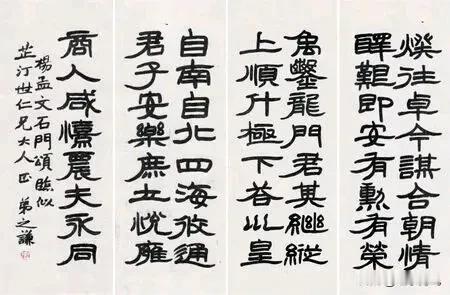 煥往卓今謀合朝情
醳艱即安有勳有榮
禹鑿龍門君其繼縱
上順斗極下答巛皇
自南自北四海攸通
君子安樂庶士悅雍
商人咸憘農夫永同
楊孟文石門頌臨似
芷汀世仁兄大人正 弟之謙